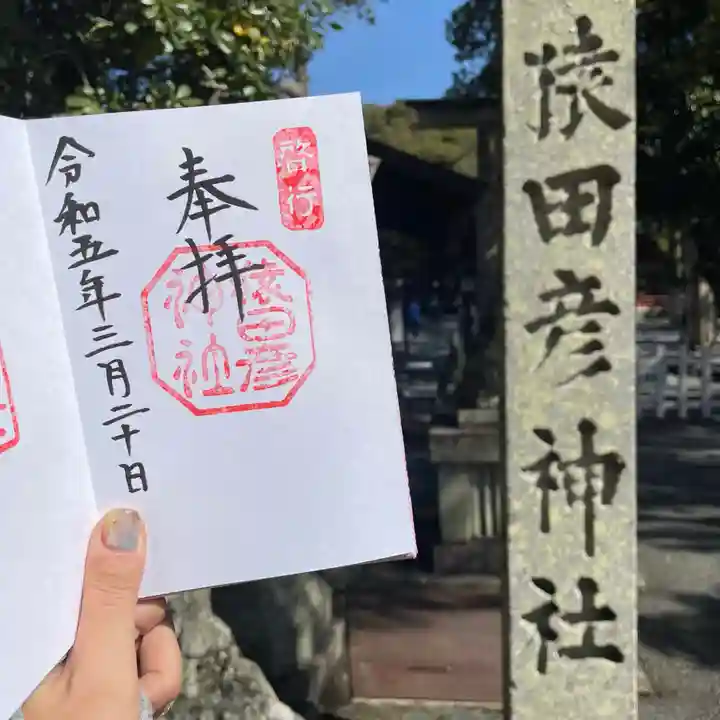 猿田彦神社
啓行
奉拝
猿田彦
神社
令和五年三月二十日